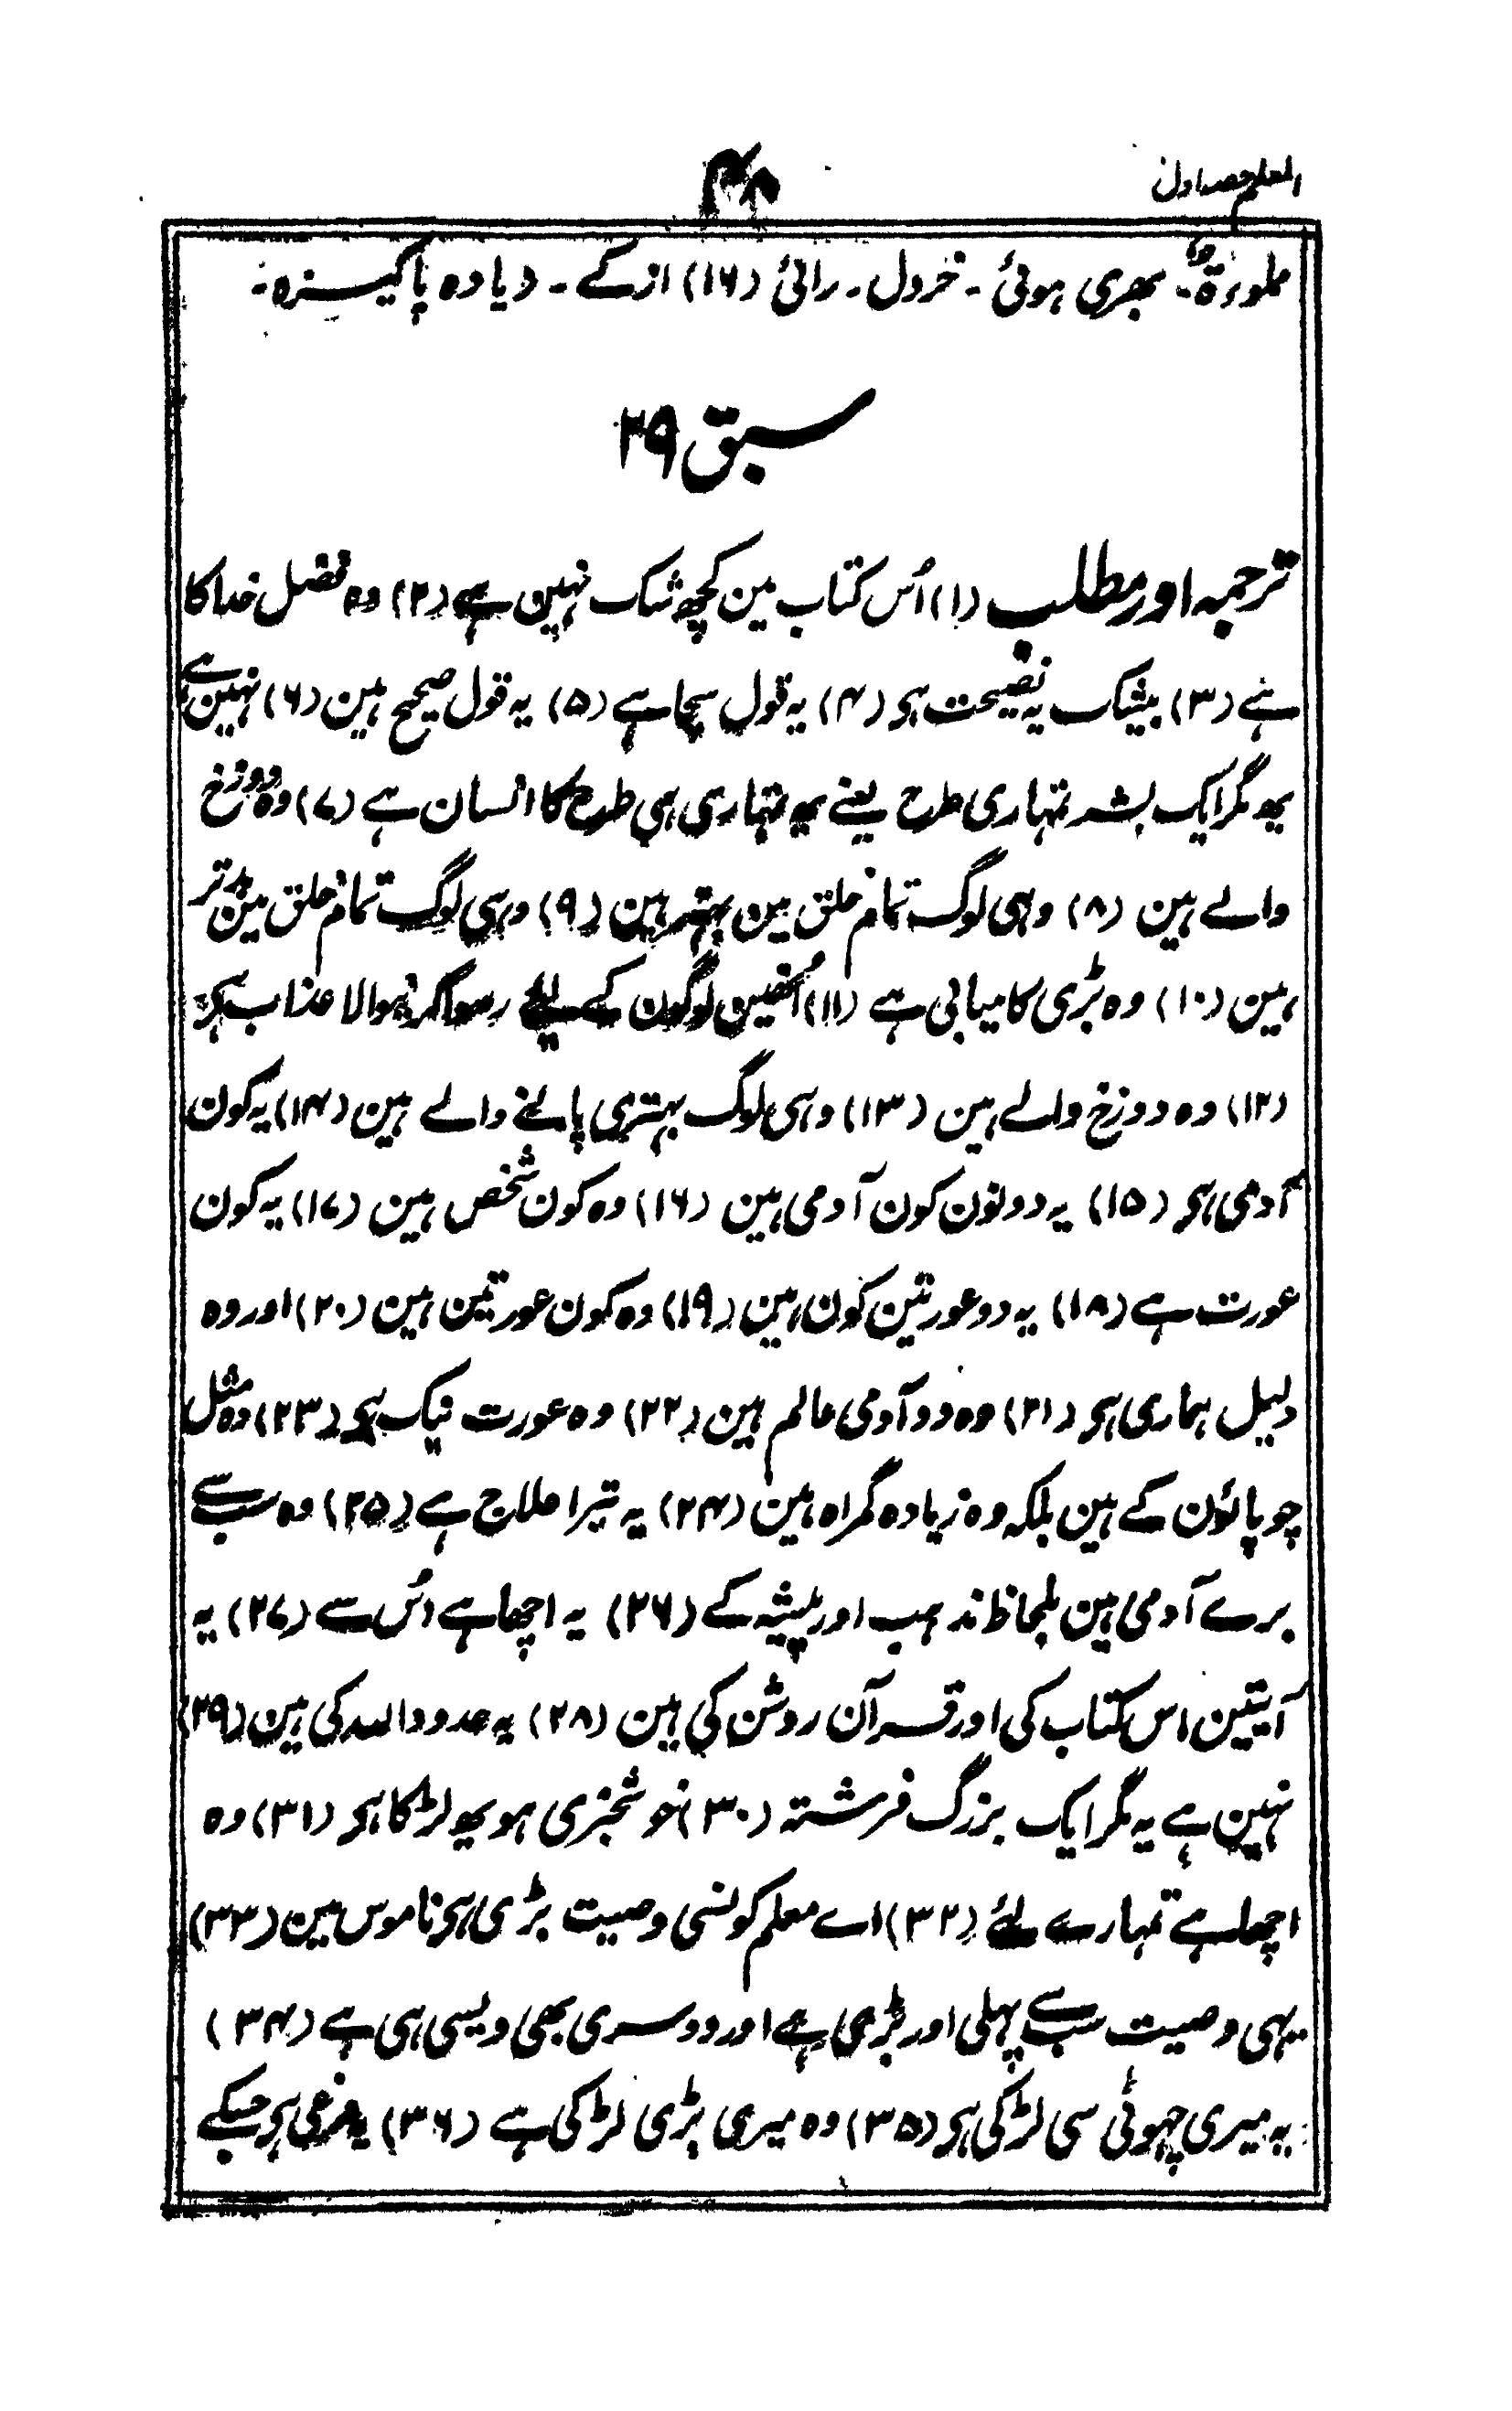 المعلم حصہ اول
۴۸
مملوءۃ۔ بھری ہوئی۔ خردل۔ رائی (۱۶) ازکے۔ دیادہ پاکیزہ۔
سبق ۲۹
ترجمہ اور مطلب (۱) اُس کتاب مین کچھ شک نہین ہے (۲) وہ فضل خدا کا
ہے (۳) بیشک یہ نصیحت ہی (۴) یہ قول سچا ہے (۵) یہ قول صحیح ہین (۶) نہین ہے
یہ مگر ایک بشر تمہاری طرح یعنے یہ تمہاری ہی طرح کا انسان ہے (۷) وہ دوزخ
والے ہین (۸) وہی لوگ تمام خلق مین بہتر ہین (۹) وہی لوگ تمام خلق مین بدتر
ہین (۱۰) وہ بڑی کامیابی ہے (۱۱) اُنھین لوگون کے لیے رسوا کرنیوالا عذاب ہی
(۱۲) وہ دوزخ والے ہین (۱۳) وہی لوگ بہتری پانے والے ہین (۱۴) یہ کون
آدمی ہی (۱۵) یہ دونون کون آدمی ہین (۱۶) وہ کون شخص ہین (۱۷) یہ کون
عورت ہے (۱۸) یہ دو عورتین کون ہین (۱۹) وہ کون عورتین ہین (۲۰) اور وہ
دلیل ہماری ہی (۲۱) وہ دو آدمی عالم ہین (۲۲) وہ عورت نیک ہی (۲۳) وہ مثل
چوپائون کے ہین بلکہ وہ زیادہ گمراہ ہین (۲۴) یہ تیرا علاج ہے (۲۵) وہ سب سے
برے آدمی ہین بلحاظ مذہب اور پیشہ کے (۲۶) یہ اچھا ہے اُس سے (۲۷) یہ
آیتین اس کتاب کی اور قرآن روشن کی ہین (۲۸) یہ حدود اللہ کی ہین (۲۹)
نہین ہے یہ مگر ایک بزرگ فرشتہ (۳۰) خوشخبری ہو یہ لڑکا ہی (۳۱) وہ
اچھا ہے تمہارے لئے (۳۲) اے معلم کونسی وصیت بڑی ہی ناموس مین (۳۳)
یہی وصیت سب سے پہلی اور بڑی ہے اور دوسری بھی ویسی ہی ہے (۳۴)
یہ میری چھوٹی سی لڑکی ہی (۳۵) وہ میری بڑی لڑکی ہے (۳۶) یہ ہی جسکے